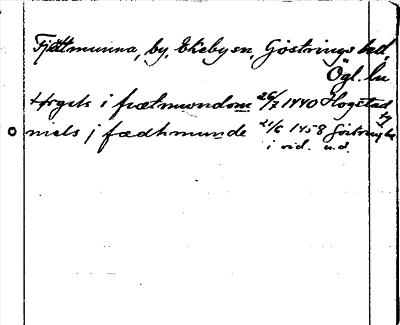 Fjättmunna, by, Ekeby sn, Göstrings hd,
Ögl. län
törgils i fiætmundom 26/7 1440 Hogstad
niels j fædhmunde 21/6 1458 Göstrings
i vid. u.d.